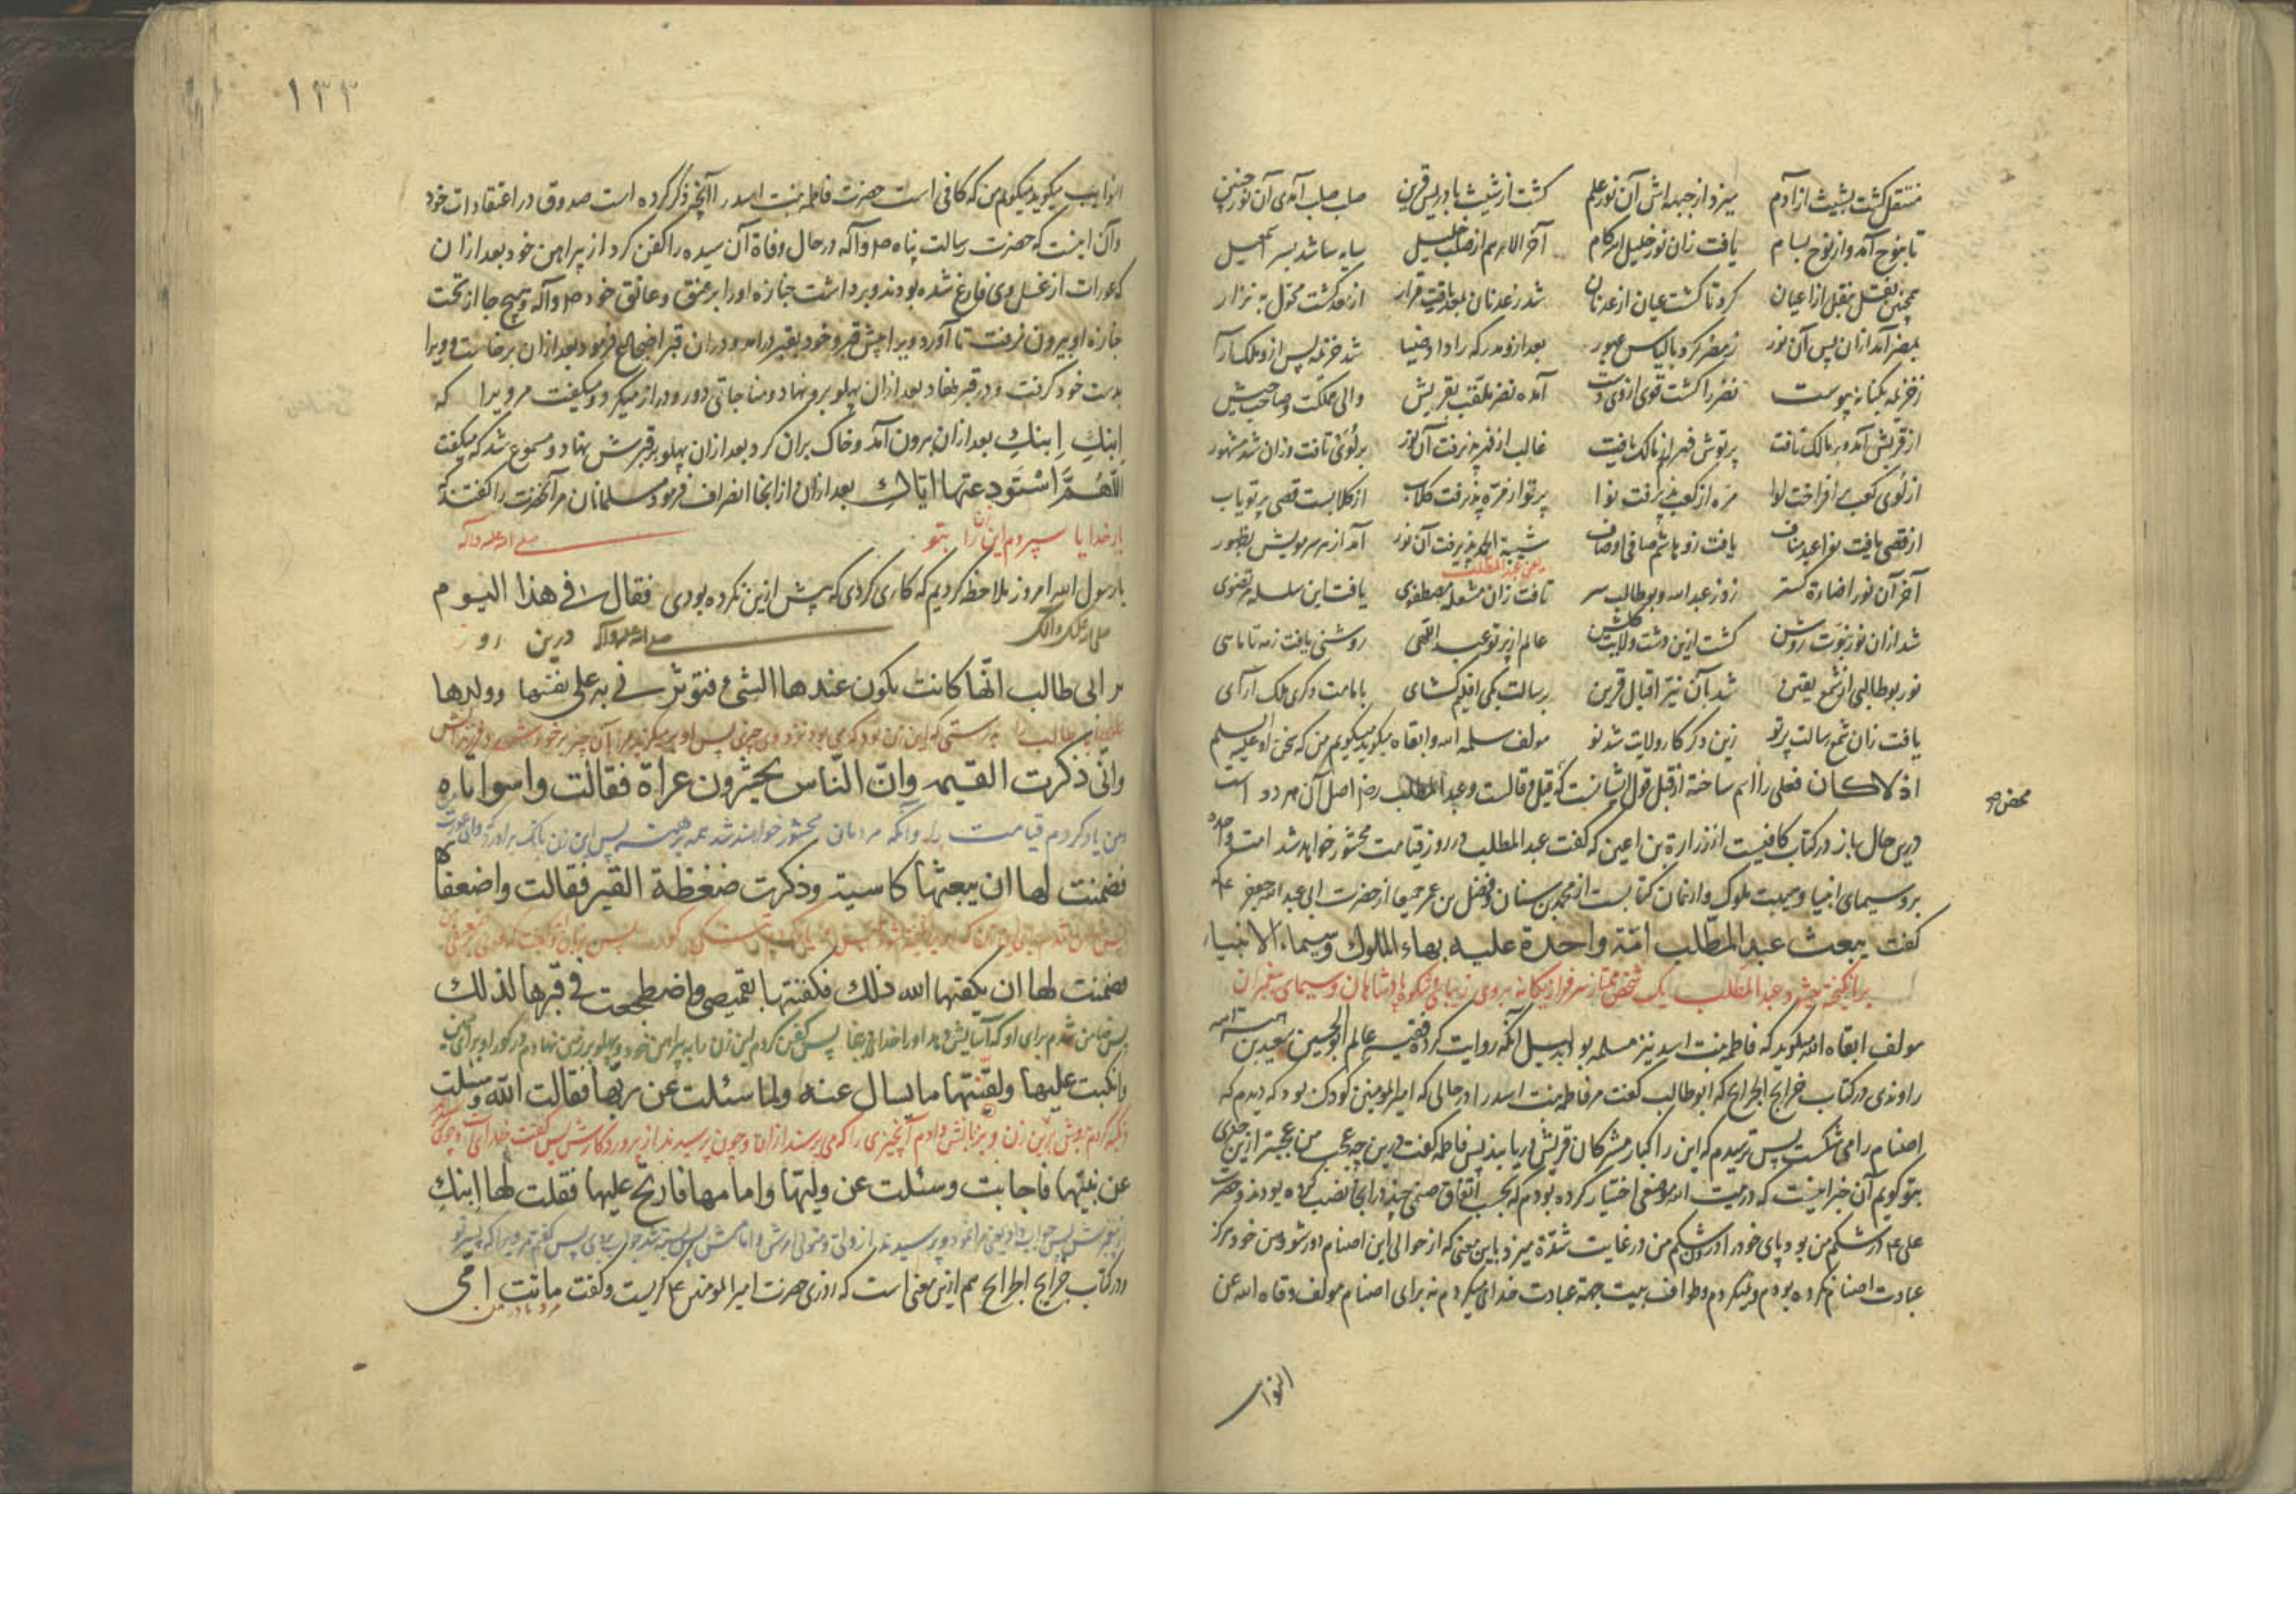 منتقل گشت بشیث از آدم میزد از جبهه اش آن نور علم گشت از شیث با دریس قرین صلب صلب آمدی آن نور چنین
تا بنوح آمد و از نوح بسام یافت زان نور خلیل اکرام آخر الامر هم از صلب خلیل
همچنین نقل بنقل از اعیان کرد تا گشت عیان از عدنان شد ز عدنان بمعد یافت قرار از معد گشت محول به نزار
بمضر آمد از آن پس آن نور ز مضر کرد بالیاس عبور بعد ازو مدرکه را داد ضیا شد خزیمه پس ازو ملک آرا
ز خزیمه بکنانه پیوست نضر را گشت قوی از وی دست آمده نضر ملقب بقریش والی مملکت و صاحب جیش
از قریش آمد و بر مالک تافت پرتوش فهر از مالک یافت غالب از فهر پذیرفت آن نور بر لؤی تافت وزان شد مشهور
از لؤی کعب افراخت لوا مره از کعب پذیرفت نوا پرتو از مره پذیرفت کلاب از کلابست قصی پرتو یاب
از قصی یافت نوا عبد مناف یافت زو هاشم صافی اوصاف شیبة الحمد پذیرفت آن نور آمد از هر سر مویش بظهور
یعنی عبد المطلب
آخر آن نور اضاءة گستر زو ز عبد الله و بوطالب سر تافت زان مشعله مصطفوی یافت این سلسله مرتضوی
شد ازان نور نبوت روشن گشت ازین دشت ولایت گلشن عالم از پرتو عبد اللهی روشنی یافت ز مه تا ماهی
نور بوطالبی از شمع یقین شد بآن نیر اقبال قرین برسالت یکی اقلیم گشای بامامت دگری ملک آرای
یافت زان شمع رسالت پرتو زین دگر کار ولایت شد نو مولف سلمه الله و ابقاه میگوید میگویم من که سخن او علیه السلم
اذ لا کان فعلی را اسم ساخته از قبل قول ایشانست که قیل و قالست و عبد المطلب رضه اصل آن هر دو است
محض صح
درین حال باز در کتاب کافیست از زرارة بن اعین که گفت عبد المطلب در روز قیامت محشور خواهد شد امت واحده
بر و سیمای انبیا و هیبت ملوک و از همان کتابست از محمد بن سنان و مفضل بن عمر جمیعا از حضرت ابی عبد الله جعفر ع
گفت یبعث عبد المطلب امة واحدة علیه بهاء الملوک و سیماء الانبیاء
برانگیخته میشود عبد المطلب یک شخص ممتاز سرفراز یگانه بروی زیبایی و شکوه پادشاهان و سیمای پیغمبران
مولف ابقاه الله میگوید که فاطمه بنت اسد نیز مسلمه بود بدلیل آنکه روایت کرده فقیه عالم ابو الحسین سعید بن هبة الله
راوندی در کتاب خرایج الجرایح که ابوطالب گفت مر فاطمه بنت اسد را در حالی که امیر المومنین کودک بود که دیدم که
اصنام را می شکست پس ترسیدم که این را کبار مشرکان قریش دریابند پس فاطمه گفت درین چه عجب من عجبتر ازین خبری
بتو گویم آن خبر اینست که در بیت الله موضعی اختیار کرده بودم که بحسب اتفاق صنمی چند در آنجا نصب کرده بودند و حضرت
علی ع در شکم من بود پای خود را در شکم من در غایت شدة میزد باین معنی که از حوالی این اصنام دور شو و من خود هرگز
عبادت اصنام نکرده بودم و نمیکردم و طواف بیت بجهة عبادت خدای میکردم نه برای اصنام مولف وقاه الله عن
النوایب
۱۳۳
النوایب میگوید میگویم من که کافی است حضرت فاطمه بنت اسد را آنچه ذکر کرده است صدوق در اعتقادات خود
و آن اینست که حضرت رسالت پناه صلی و آله در حال وفاة آن سیده را کفن کرد از پیراهن خود بعد ازان
که عورات از غسل وی فارغ شده بودند و برداشت جنازه او را بر عنق و عاتق خود صلی و آله و هیچ جا از تحت
جنازه او بیرون نرفت تا آورد ویرا پیش قبر و خود بقبر درآمد و دران قبر اضجاع فرمود بعد ازان برخاست و ویرا
بدست خود گرفت و در قبر نهاد بعد ازان پهلو برو نهاد و مناجاتی دور و دراز میکرد و میگفت مر ویرا که
ابنک ابنک بعد ازان بیرون آمد و خاک بران کرد بعد ازان پهلو بر قبرش نهاد و مسموع شد که میگفت
اللهم استودعتها ایاک بعد ازان از انجا انصراف فرمود مسلمانان مر آنحضرت را گفتند که
بار خدایا سپردم این زن را بتو صلی الله علیه و آله
یا رسول الله امروز ملاحظه کردیم که کاری کردی که پیش ازین نکرده بودی فقال فی هذا الیوم
صلی الله علیک و آلک صلی الله علیه و آله درین رو
بر ابی طالب انها کانت یکون عندها الشیء فتوثرنی به علی نفسها وولدها
بدرستی که این زن بود که می بود نزد وی چیزی پس
وانی ذکرت القیمه وان الناس یحشرون عراة فقالت واسواتاه
من یاد کردم قیامت را و آنکه مردمان محشور خواهند شد همه برهنه پس این زن بانگ برآورد
فضمنت لها ان یبعثها کاسیة وذکرت ضغطة القبر فقالت واضعفاه
فضمنت لها ان یکفیها الله ذلک فکفنتها بقمیصی واضطجعت فی قبرها لذلک
پس ضامن شدم برای او که آسایش دهد او را خدا پس کفن کردم این زن را به پیراهن خود و پهلو بر زمین نهادم در گور او برای
وانکببت علیها ولقنتها ما یسال عنه ولما سئلت عن ربها فقالت الله وسئلت
عن نبیها فاجابت وسئلت عن ولیها وامامها فارتج علیها فقلت لها ابنک
در کتاب خرایج الجرایح هم ازین معنی است که روزی حضرت امیر المومنین ع گریست و گفت ماتت امی
مرد مادر من